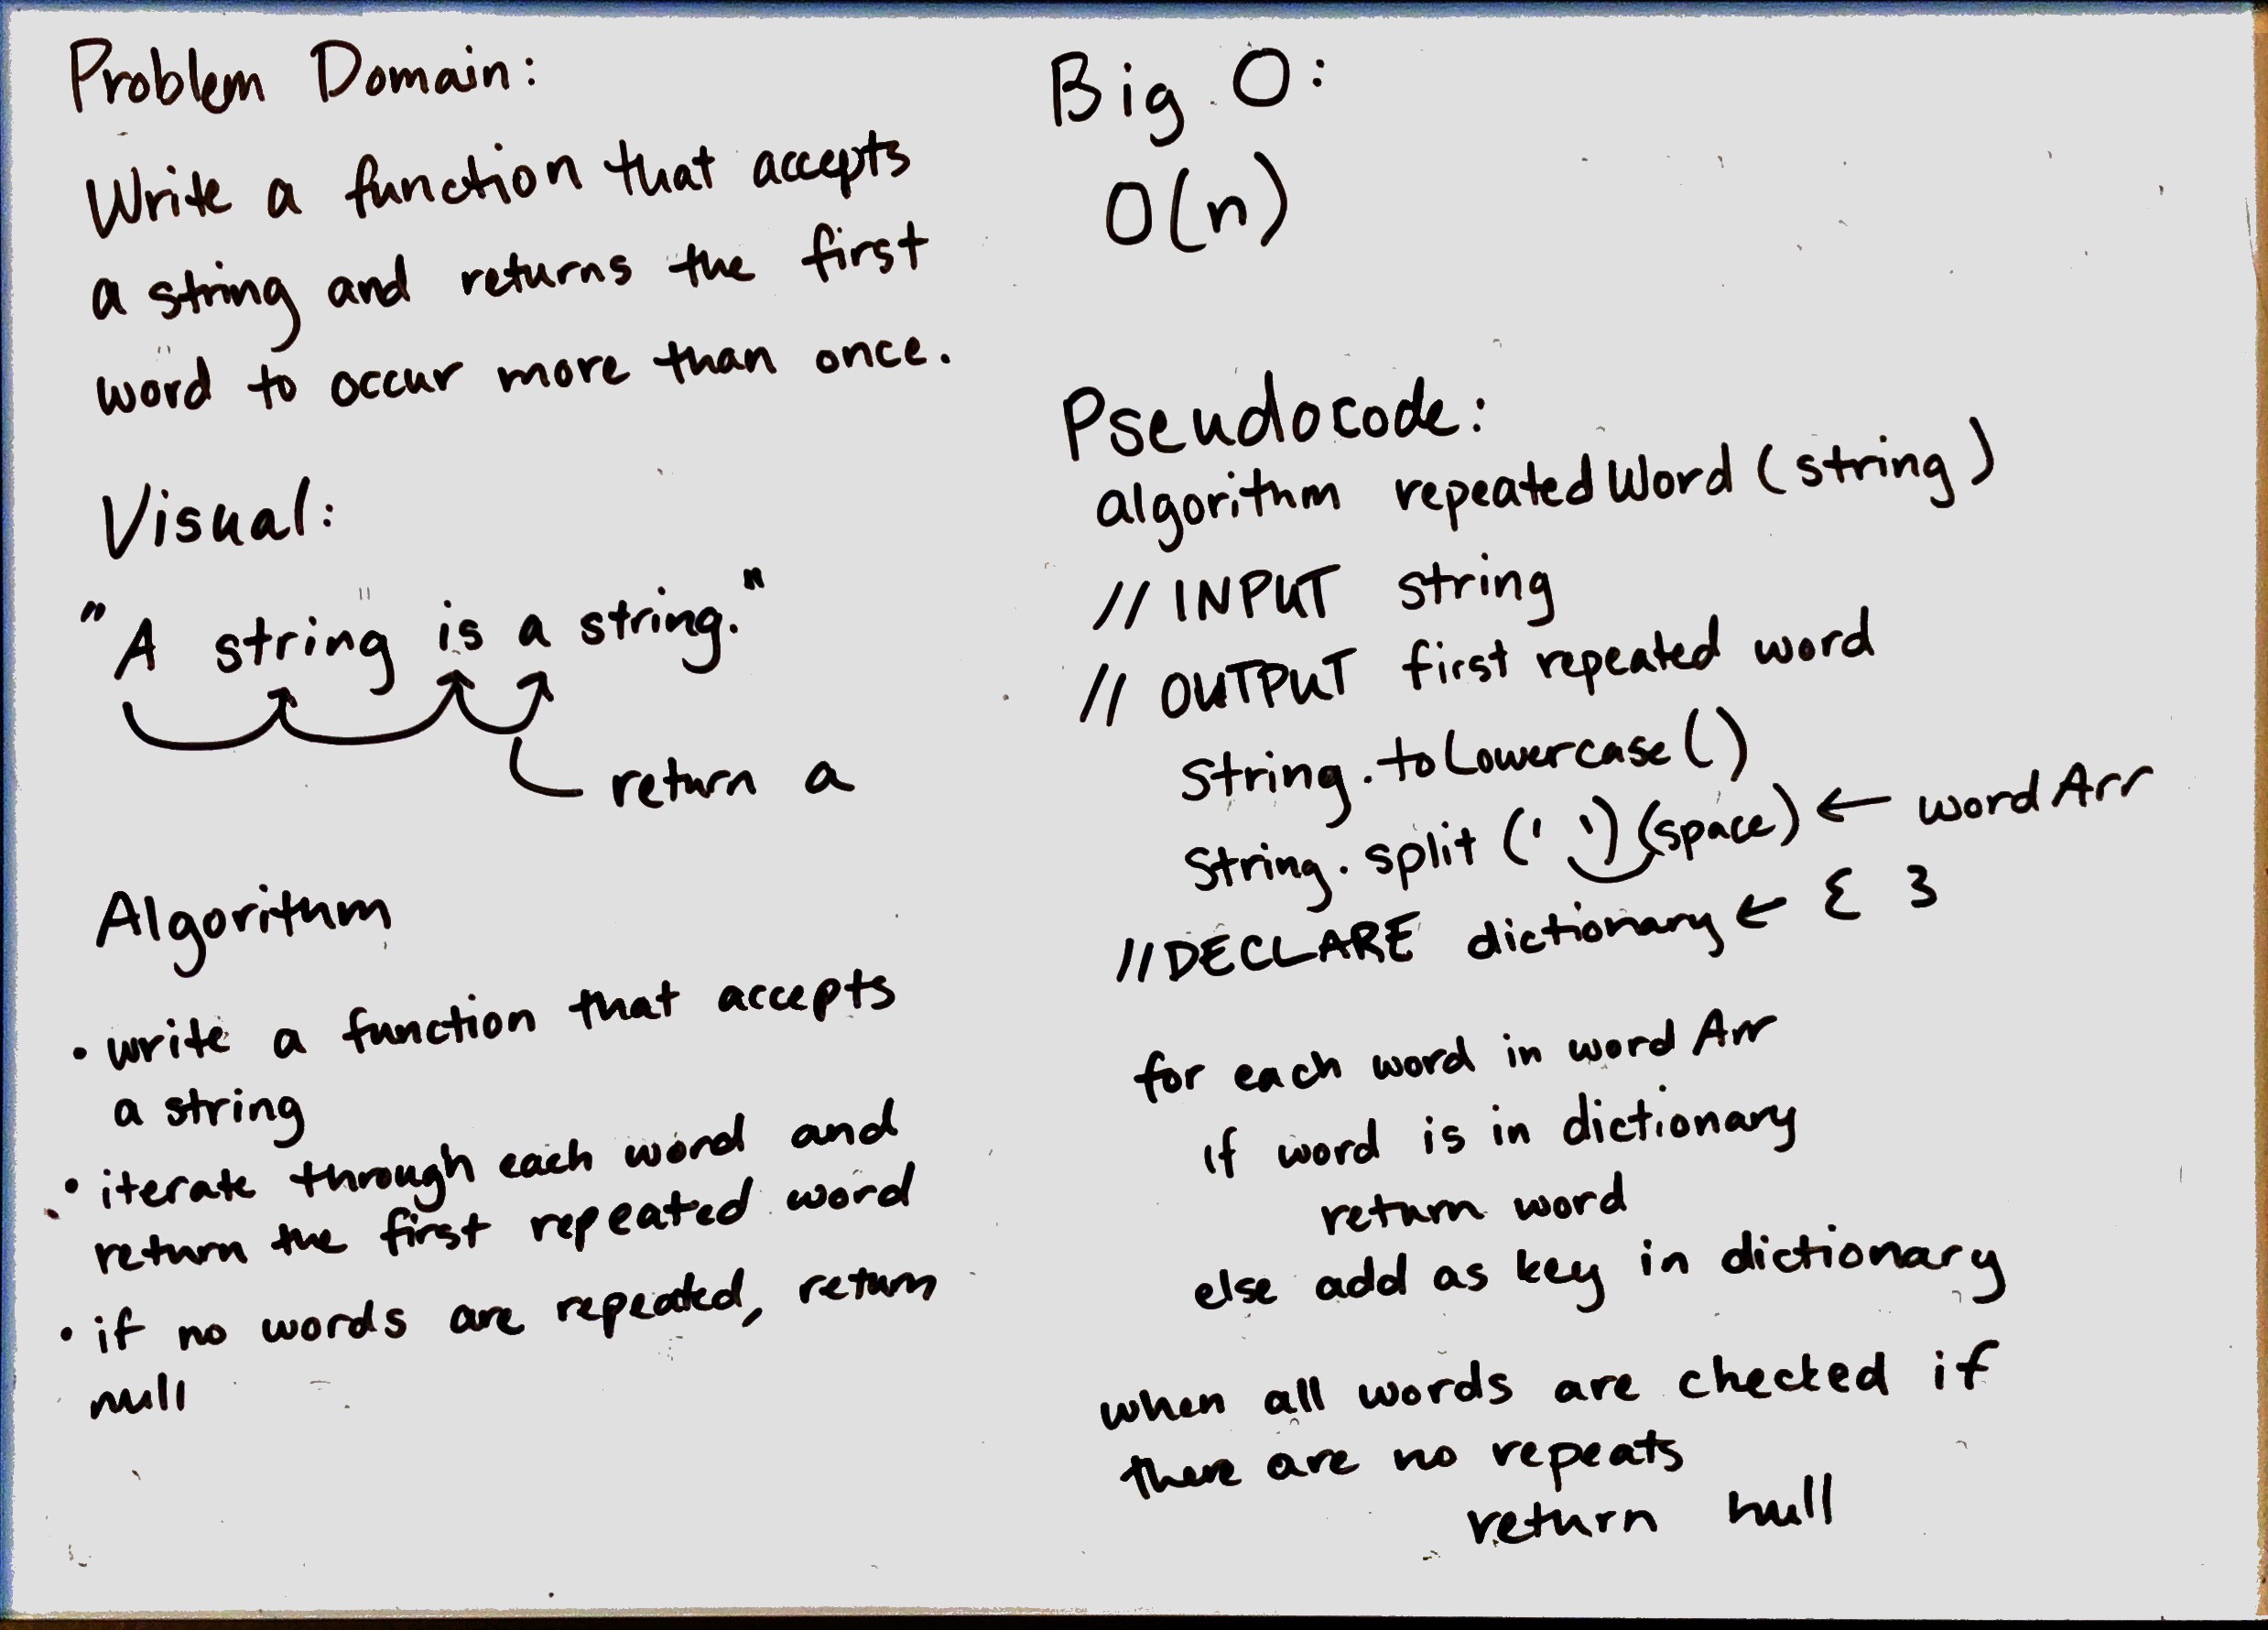 Problem Domain:
Write a function that accepts
a string and returns the first
word to occur more than once.
Visual:
"A string is a string."
return a
Algorithm
• write a function that accepts
a string
• iterate through each word and
return the first repeated word
• if no words are repeated, return
null
Big O:
O(n)
Pseudocode:
algorithm repeatedWord (string)
// INPUT string
// OUTPUT first repeated word
String.toLowercase()
String.split(' ') (space) ← wordArr
//DECLARE dictionary ← { }
for each word in wordArr
if word is in dictionary
return word
else add as key in dictionary
when all words are checked if
there are no repeats
return null